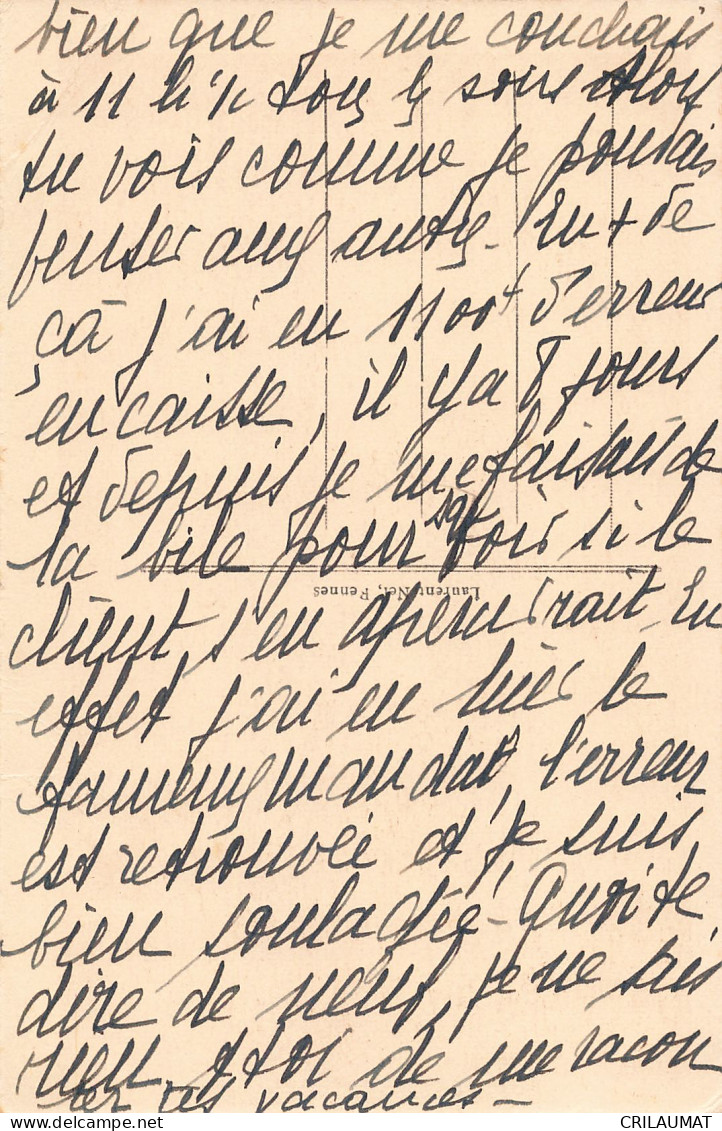 bien que je me couchais
à 11 h ½ tous les soirs alors
tu vois comme je pouvais
penser aux autres - En + de
ça j'ai eu 1100f d'erreur
en caisse, il y a 8 jours
et depuis je me faisais de
la bile pour voir si le
client s'en apercevrait - En
effet j'ai eu hier le
fameux mandat, l'erreur
est retrouvée et je suis
bien soulagée - Quoi te
dire de neuf, je ne sais
rien, à toi de me racon
ter tes vacances -
Laurent-Nel, Rennes
CRILAUMAT